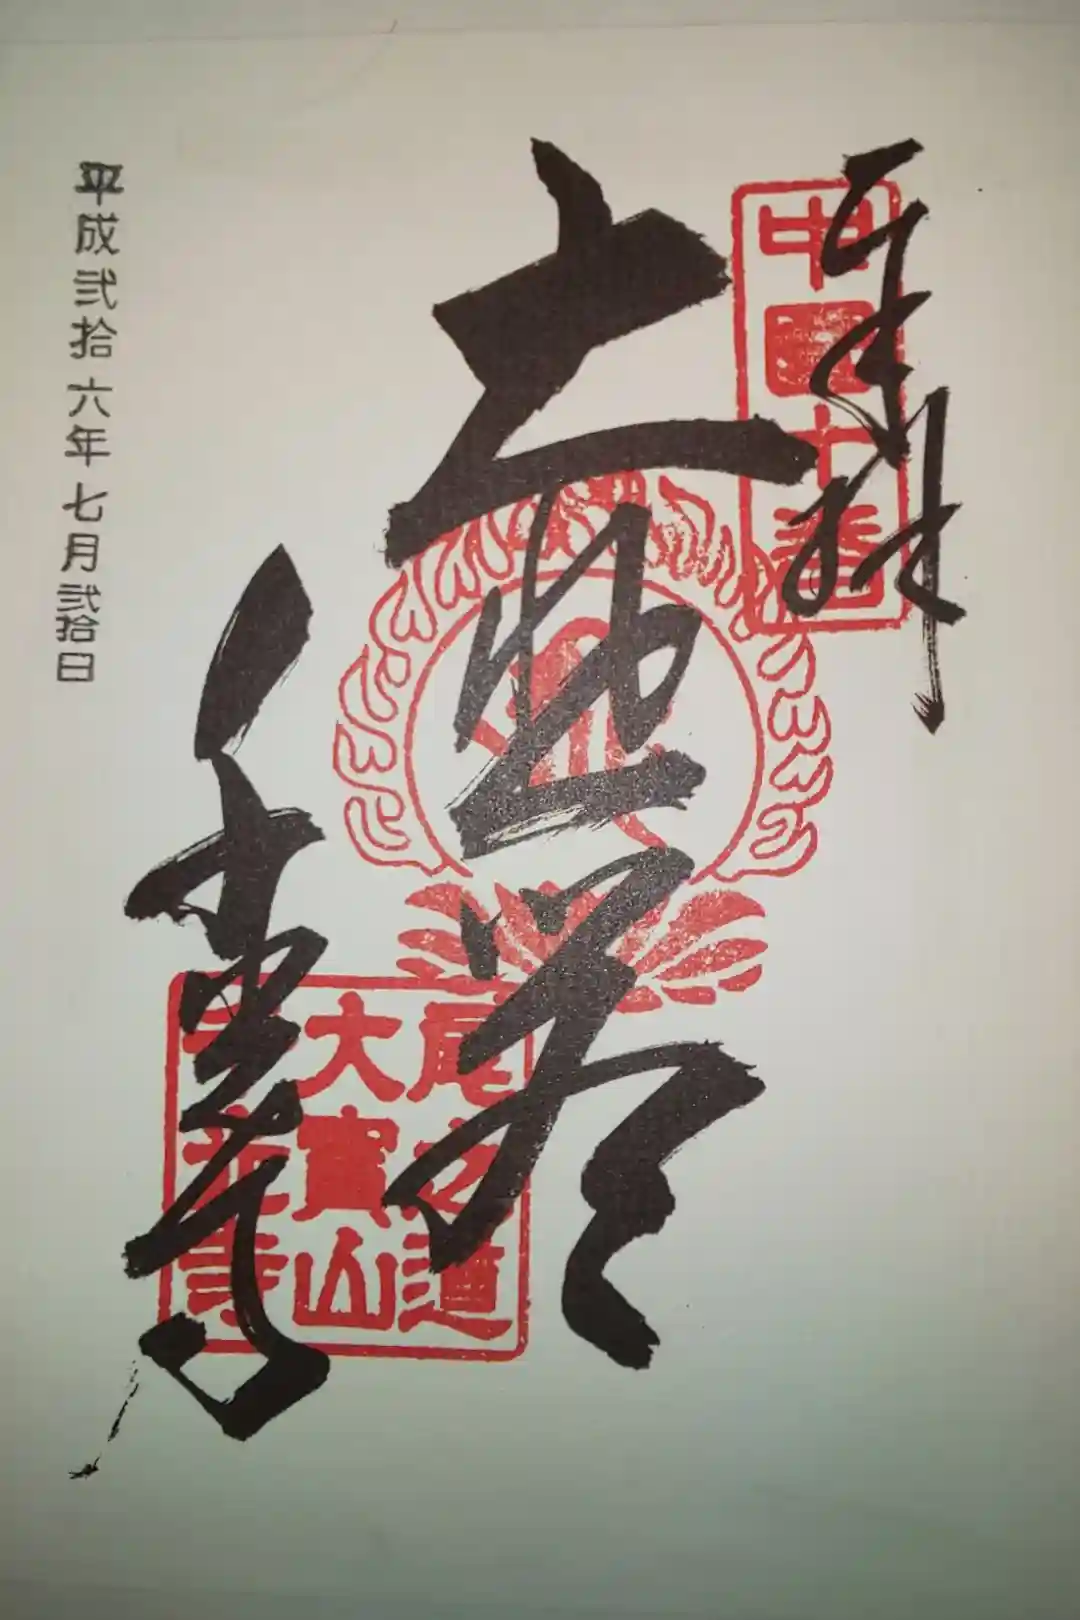 奉拝
中國十番
大悲
尾之道
大寶山
千光寺
平成弐拾六年七月弐拾日